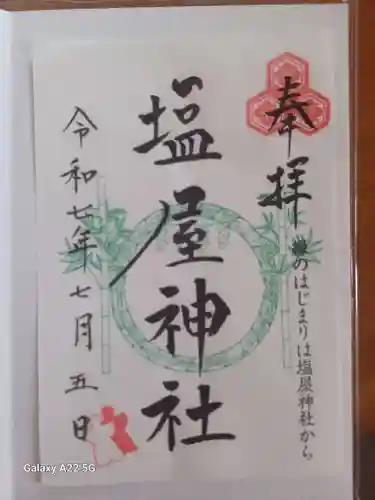 奉拝
のはじまりは塩屋神社から
塩屋神社
令和七年七月五日
Galaxy A22 5G